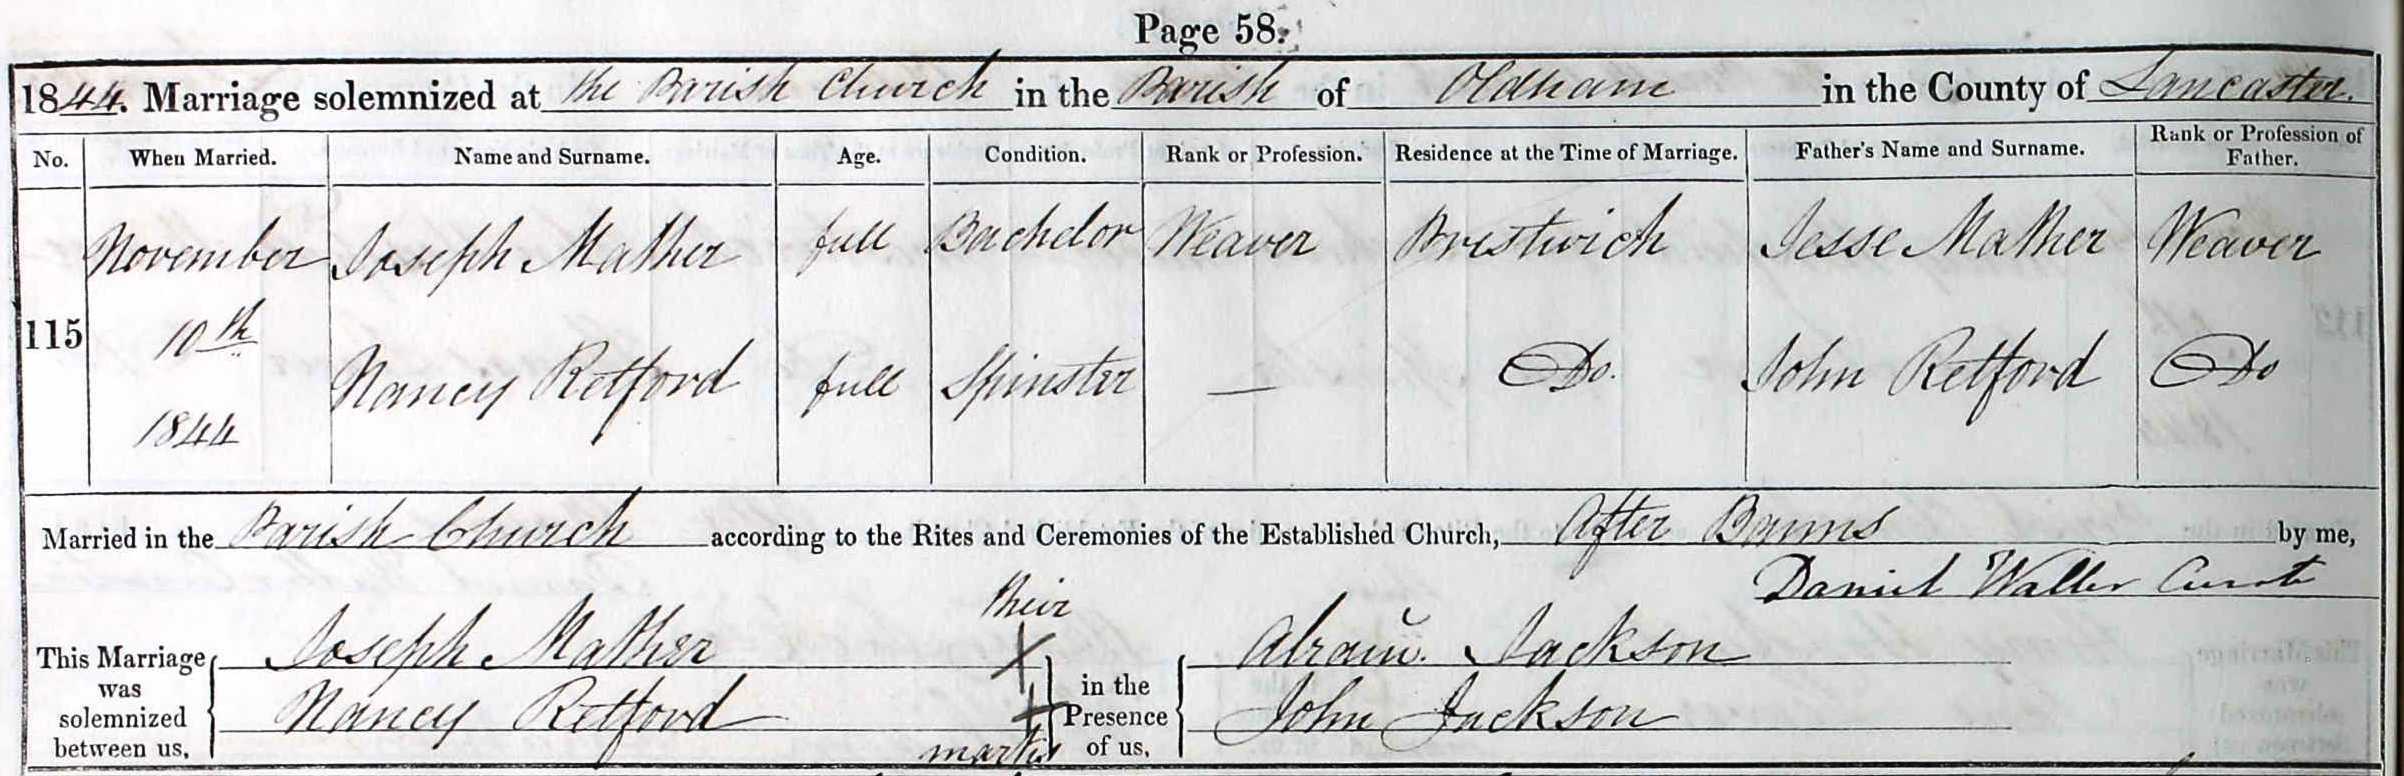 Page 58.
1844. Marriage solemnized at the Parish Church in the Parish of Oldham in the County of Lancaster.
No. When Married. Name and Surname. Age. Condition. Rank or Profession. Residence at the Time of Marriage. Father's Name and Surname. Rank or Profession of Father.
November Joseph Mather full Bachelor Weaver Prestwich Jesse Mather Weaver
115 10th
Nancy Retford full Spinster — Do. John Retford Do
1844
Married in the Parish Church according to the Rites and Ceremonies of the Established Church, After Banns by me,
Daniel Waller Curate
their
This Marriage was solemnized between us, Joseph Mather X in the Presence of us, Jackson
Nancy Retford + John Jackson
marks